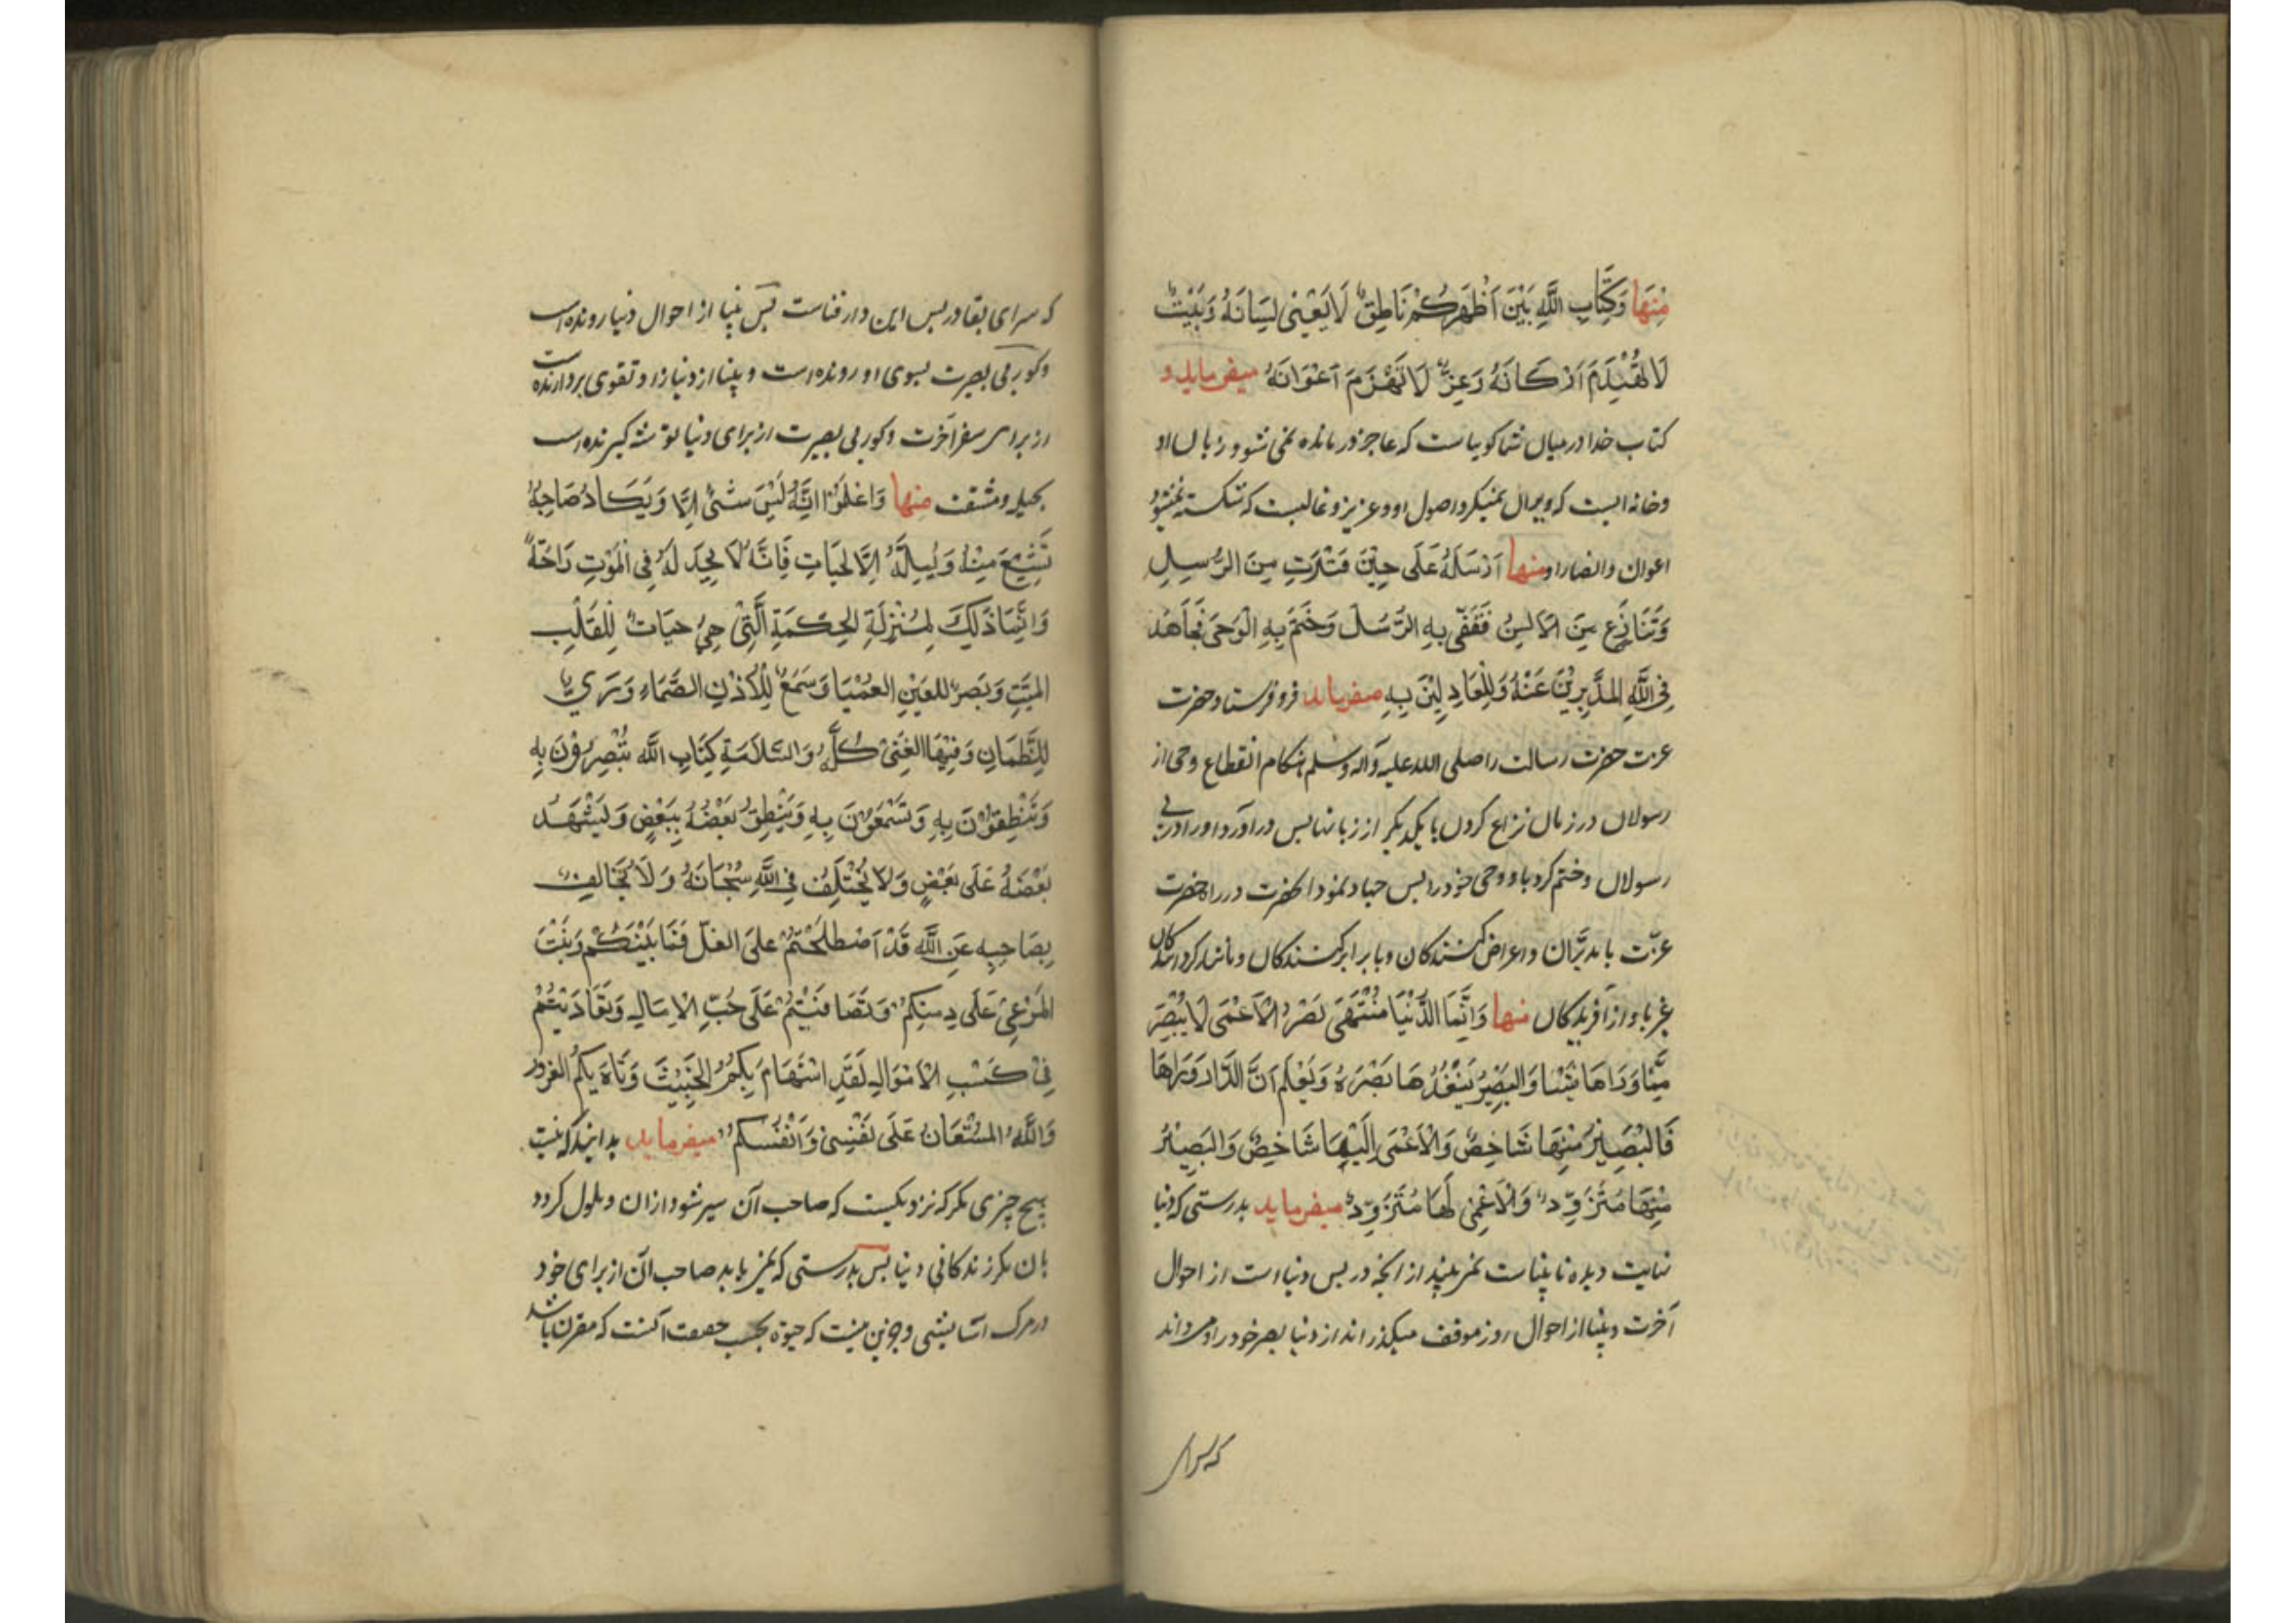 مِنْهَا وَكِتَابِ اللَّهِ بَيْنَ اَظْهَرِكُمْ نَاطِقٌ لَا يَعْيٰى لِسَانَهُ وَبَيْتٌ
لَا تُهْدَمَ اَرْكَانَهُ وَعِزٌّ لَا تُهْزَمَ اَعْوَانَهُ ميفرمايد و
كتاب خدا درميان شما كوياست كه عاجز و درمانده نمى شود زبان او
وخانه ايست كه ويران نميكردد اصول او وعزيز وغالبست كه شكسته نميشود
اعوان وانصار او منها اَرْسَلَهُ عَلَى حِيْنَ فَتْرَتٍ مِنَ الرُّسِلِ
وَتَنَازُعٍ مِنَ الْاَلْسِنُ فَقَفّٰى بِهِ الرُّسُلَ وَخَتَمَ بِهِ الْوَحَى فَجَاَهَدَ
فِى اللَّهِ المدْبِرِيْنَ عَنْهُ وَالْعَادِلِيْنَ بِهِ ميفرمايد فرو فرستاد حضرت
عزت حضرت رسالت را صلى الله عليه وآله وسلم هنكام انقطاع وحى از
رسولان در زمان نزاع كردن با يكديكر از زبانها پس درآورد او را در پى
رسولان وختم كرد باو وحى خود را پس جهاد نمود آنحضرت در راه حضرت
عزّت با مدبّران واعراض كنندكان وبا برابر كنندكان ومانند كرداننده‌كان
غير باو از آفريدكان منها وَاِنَّمَا الدُّنْيَا مُنْتَهَى بَصَرُ الْاَعْمَى لَا يُبْصِرَ
مِمَّا وَرَاهَا شَيْئا وَالبَصِيْرُ يَنْفُذُهَا بَصَرَهُ وَيَعْلَم اَنَّ الدَّارَ وَرَاهَا
فَالبَصِيْرُ مِنْهَا شَاخِصٌ وَالْاَعْمَى اِلَيْهَا شَاخِصٌ وَالبَصِيْرُ
مِنْهَا مُتَزَوِّدٌ وَالْاَعْمٰى لَهَا مُتَزَوِّدٌ ميفرمايد بدرستى كه دنيا
نهايت ديده نابيناست نمى بيند از انچه در پس دنيا است از احوال
آخرت وبينا از احوال روز موقف ميكذراند از دنيا بصر خود را وميداند
كه سراى
كه سراى بقا در پس اين دار فناست پس بينا از احوال دنيا رونده است
وكور بى بصيرت بسوى او رونده است وبينا از دنيا زاد وتقوى بردارنده است
از براى سفر آخرت وكور بى بصيرت از براى دنيا توشه كيرنده است
بحيله ومشقت منها وَاعْلَمُوْا اَنَّهُ لَيْسَ شَىْءٌ اِلَّا وَيَكَادُ صَاحِبُهُ
تَشْبَعَ مِنْهُ وَيُمِلَّهُ اِلَّا لحَيَاتِ فَاِنَّهُ لَا يَجِدَ لَهُ فِى الْمَوْتِ رَاحَةً
وَاِنَّمَا ذَلِكَ بِمُنْزِلَةِ الْحِكَمَةِ الَّتِىْ هِىَ حَيَاتٌ لِلْقَلْبِ
الميّتِ وَبَصَرٌ للعَيْنِ العَمْيَا وَسَمَعٌ لِلْاُذْنِ الصَّمَاءِ وَرَىٌّ
لِلظَّمَانِ وَفِيْهَا الغِنٰى كُلُّهُ وَالسَّلَامَةِ كِتَابِ اللّٰه تُبْصِرُوْنَ بِهِ
وَتَنْطِقُوْنَ بِهِ وَتَسْمَعُوْنَ بِهِ وَيَنْطِقُ بَعْضُهُ بِبَعْضٍ وَلِيَشْهَدُ
بَعْضَهُ عَلَى بَعْضٍ وَلَا يُخْتَلِفُ فِى اللَّهِ سُبْحَانَهُ وَلَا يُخَالِفُ
بِصَاحِبِهِ عَنِ اللَّه قَدْ اَصْطَلَحْتُمْ عَلىَ الغلّ فَمَا بَيْنَكُمْ وَنَبْتَ
المَرْعىٰ عَلَى دِمنِكمْ وَتَصَافَيْتُمْ عَلَى حُبِّ الْامَالِ وَتَعَادَيْتُمْ
فِىْ كَسْبِ الْاَمْوَالِ لَقَدِ اسْتَهَامَ بِكُمُ الخَبِيْثَ وَتَاهَ بِكُمُ الغُرُوْر
وَاللَّهُ المسْتَعَانُ عَلَى نَفْسِىْ وَاَنْفُسَكمْ ميفرمايد بدانيد كه نيست
هيچ چيزى مكر كه نزديكست كه صاحب آن سير شود از ان وملول كردد
بان مكر زندكانى دنيا پس بدرستى كه نمى يابد صاحب آن از براى خود
در مرك آسايشى وجزين نيست كه حيوة بحسب حقيقت آنست كه مقرن باشد